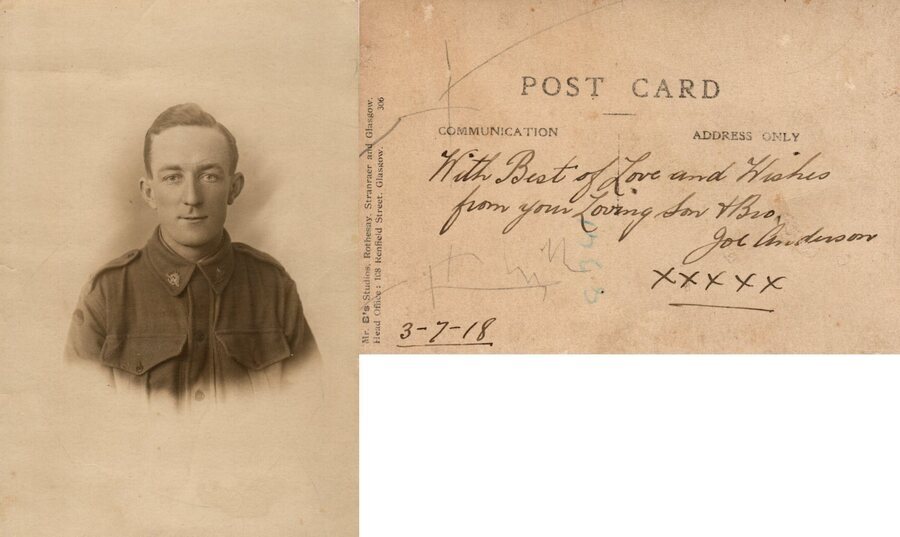 POST CARD
COMMUNICATION
ADDRESS ONLY
With Best of Love and Wishes
from your Loving Son & Bro,
Joe Anderson
XXXXX
3-7-18
Mr. B's Studios, Rothesay, Stranraer and Glasgow.
Head Office: 108 Renfield Street, Glasgow. 306